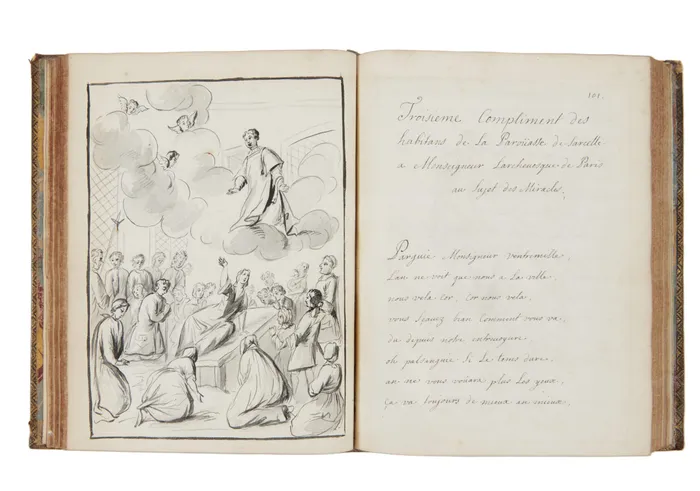 101.
Troisieme Compliment des
habitans de La Paroüasse de Sarcelle
a Monseigneur Larcheuesque de Paris
au Sujet des Miracles.
Parguie Monsigneur ventremeille,
Lan ne voit que nous a La ville,
nous vela cor, Cor nous vela,
vous Sçavez bian Comment vous va,
du depuis notre entreveuë,
oh palsanguie Si La tems dure,
an ne vous voüara plus Les yeux,
Ça va toujours de mieux au mieux,